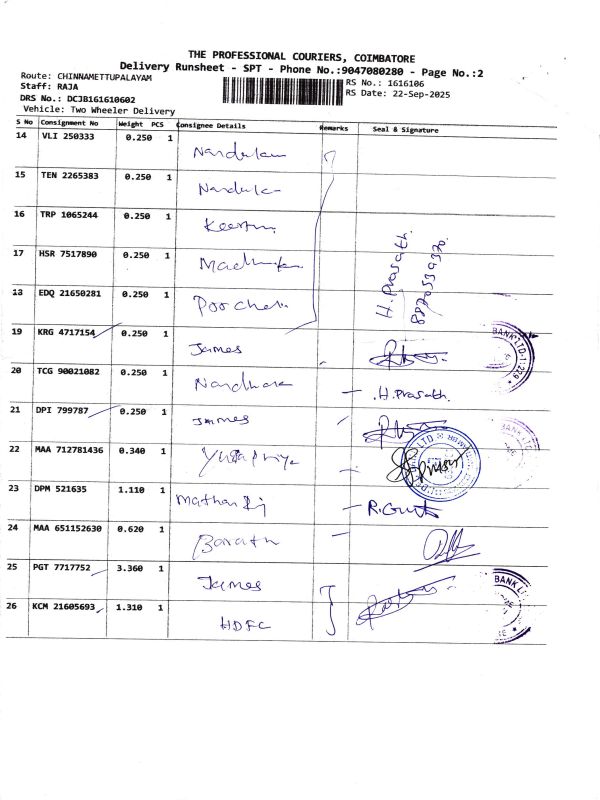 THE PROFESSIONAL COURIERS, COIMBATORE
Delivery Runsheet - SPT - Phone No.:9047080280 - Page No.:2
Route: CHINNAMETTUPALAYAM
Staff: RAJA
DRS No.: DCJB161610602
Vehicle: Two Wheeler Delivery
RS No.: 1616106
RS Date: 22-Sep-2025
S No Consignment No Weight PCS Consignee Details Remarks Seal & Signature
14 VLI 250333 0.250 1
15 TEN 2265383 0.250 1
16 TRP 1065244 0.250 1
17 HSR 7517890 0.250 1
H.Prasath.
18 EDQ 21650281 0.250 1
19 KRG 4717154 0.250 1 James
BANK LTD
20 TCG 90021082 0.250 1 .H.Prasath.
21 DPI 799787 0.250 1 James
22 MAA 712781436 0.340 1
23 DPM 521635 1.110 1
24 MAA 651152630 0.620 1 Barath
25 PGT 7717752 3.360 1 James
BANK
26 KCM 21605693 1.310 1 HDFC